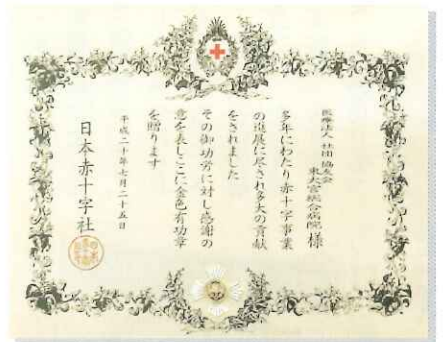 医療法人社団協友会
東大宮総合病院 様
多年にわたり赤十字事業
の進展に尽され多大の貢献
をされました
その御功労に対し感謝の
意を表しここに金色有功章
を贈ります
平成二十年七月二十五日
日本赤十字社